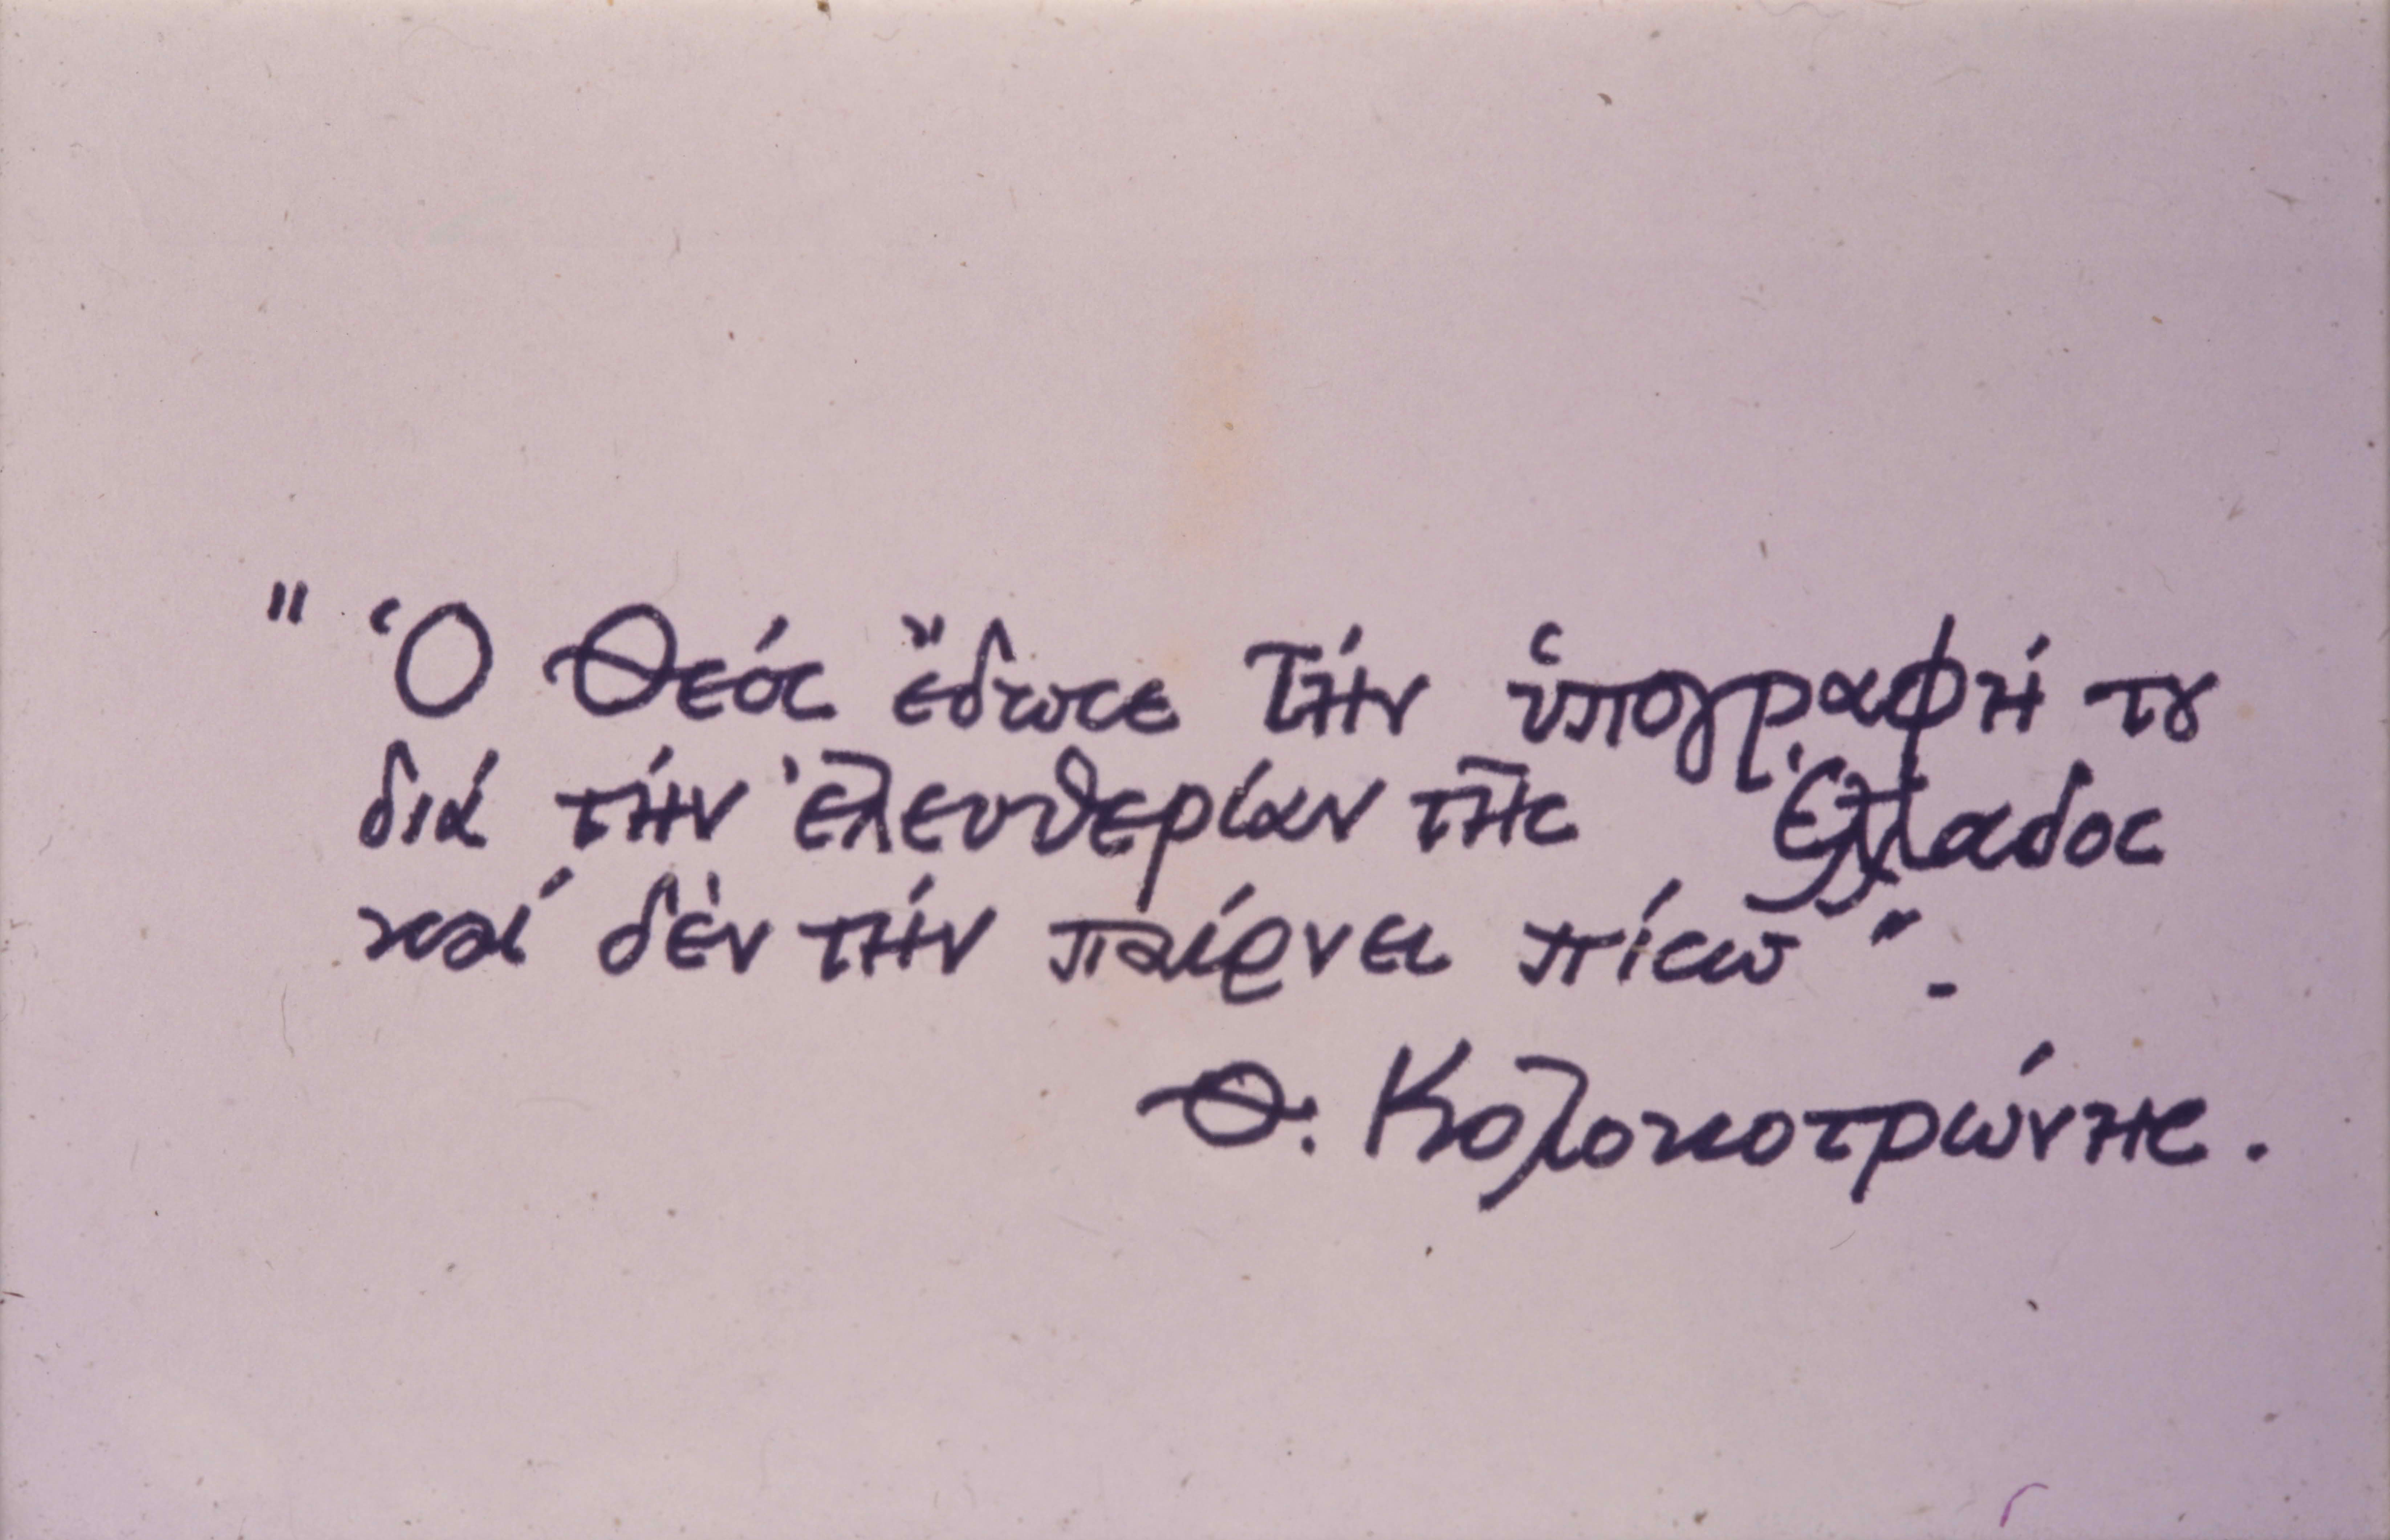 " Ὁ Θεός ἔδωσε τήν ὑπογραφή τȣ
διά τήν ἐλευθερίαν τῆς Ἑλλάδος
καί δέν τήν παίρνει πίσω".
Θ. Κολοκοτρώνης.